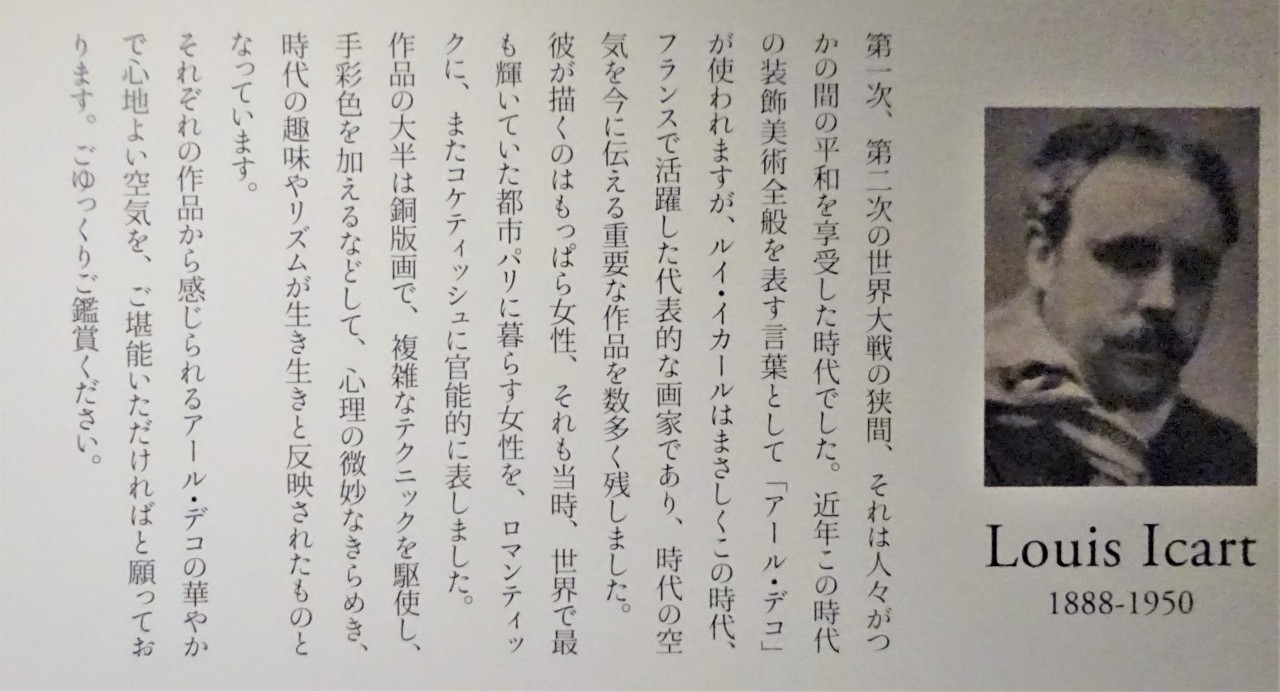 Louis Icart
1888-1950
第一次、第二次の世界大戦の狭間、それは人々がつ
かの間の平和を享受した時代でした。近年この時代
の装飾美術全般を表す言葉として「アール・デコ」
が使われますが、ルイ・イカールはまさしくこの時代、
フランスで活躍した代表的な画家であり、時代の空
気を今に伝える重要な作品を数多く残しました。
彼が描くのはもっぱら女性、それも当時、世界で最
も輝いていた都市パリに暮らす女性を、ロマンティッ
クに、またコケティッシュに官能的に表しました。
作品の大半は銅版画で、複雑なテクニックを駆使し、
手彩色を加えるなどして、心理の微妙なきらめき、
時代の趣味やリズムが生き生きと反映されたものと
なっています。
それぞれの作品から感じられるアール・デコの華やか
で心地よい空気を、ご堪能いただければと願ってお
ります。ごゆっくりご鑑賞ください。